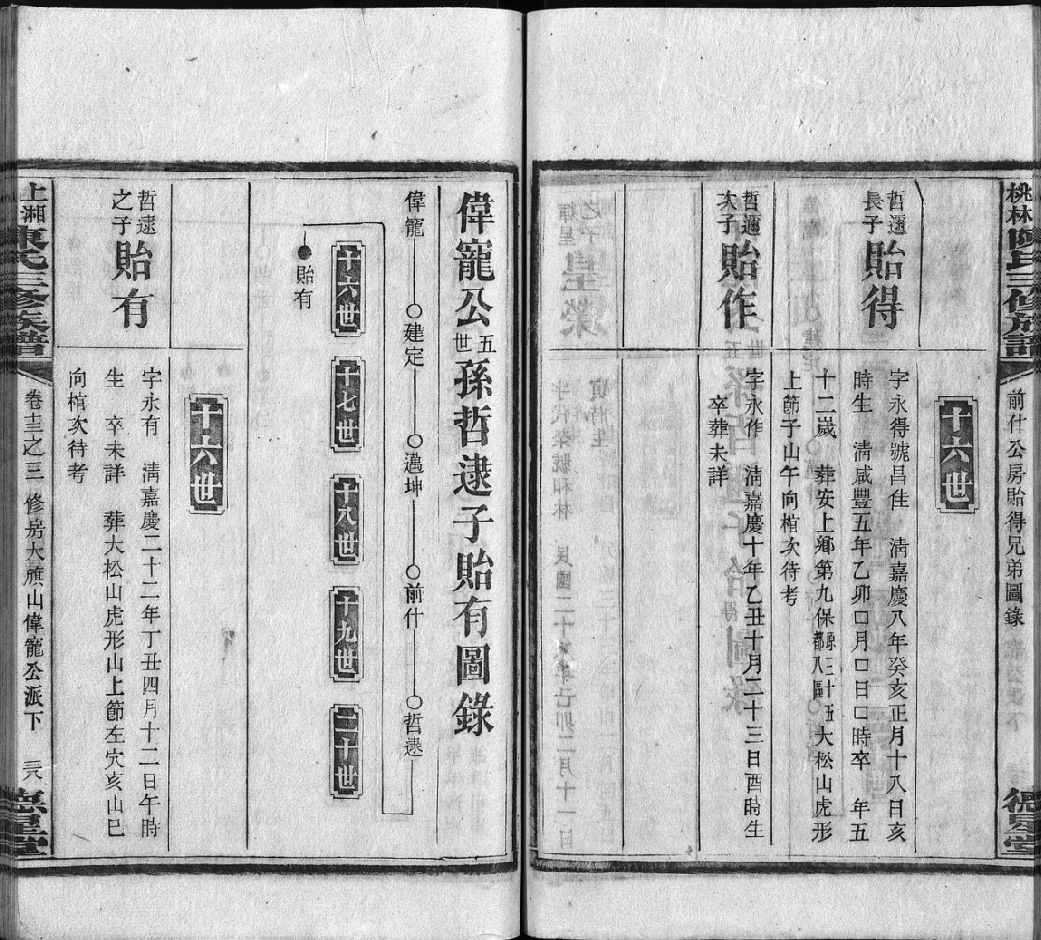 桃林陳氏三修族譜
前什公房貽得兄弟圖錄
德星堂
十六世
哲邇長子
貽得
字永得號昌佳 淸嘉慶八年癸亥正月十八日亥
時生 淸咸豐五年乙卯口月口日口時卒 年五
十二歲 葬安上鄉第九保原三十五都八區大松山虎形
上節子山午向楦次待考
哲邇次子
貽作
字永作 淸嘉慶十年乙丑十月二十三日酉時生
卒葬未詳
偉寵公五世孫哲逮子貽有圖錄
偉寵
建定
遇坤
前什
哲逮
十六世
十七世
十八世
十九世
二十世
貽有
十六世
哲逮之子
貽有
字永有 淸嘉慶二十二年丁丑四月十二日午時
生 卒未詳 葬大松山虎形山上節左穴亥山巳
向楦次待考
上湘陳氏三修族譜
卷三之三 修房大旗山偉寵公派下
德星堂